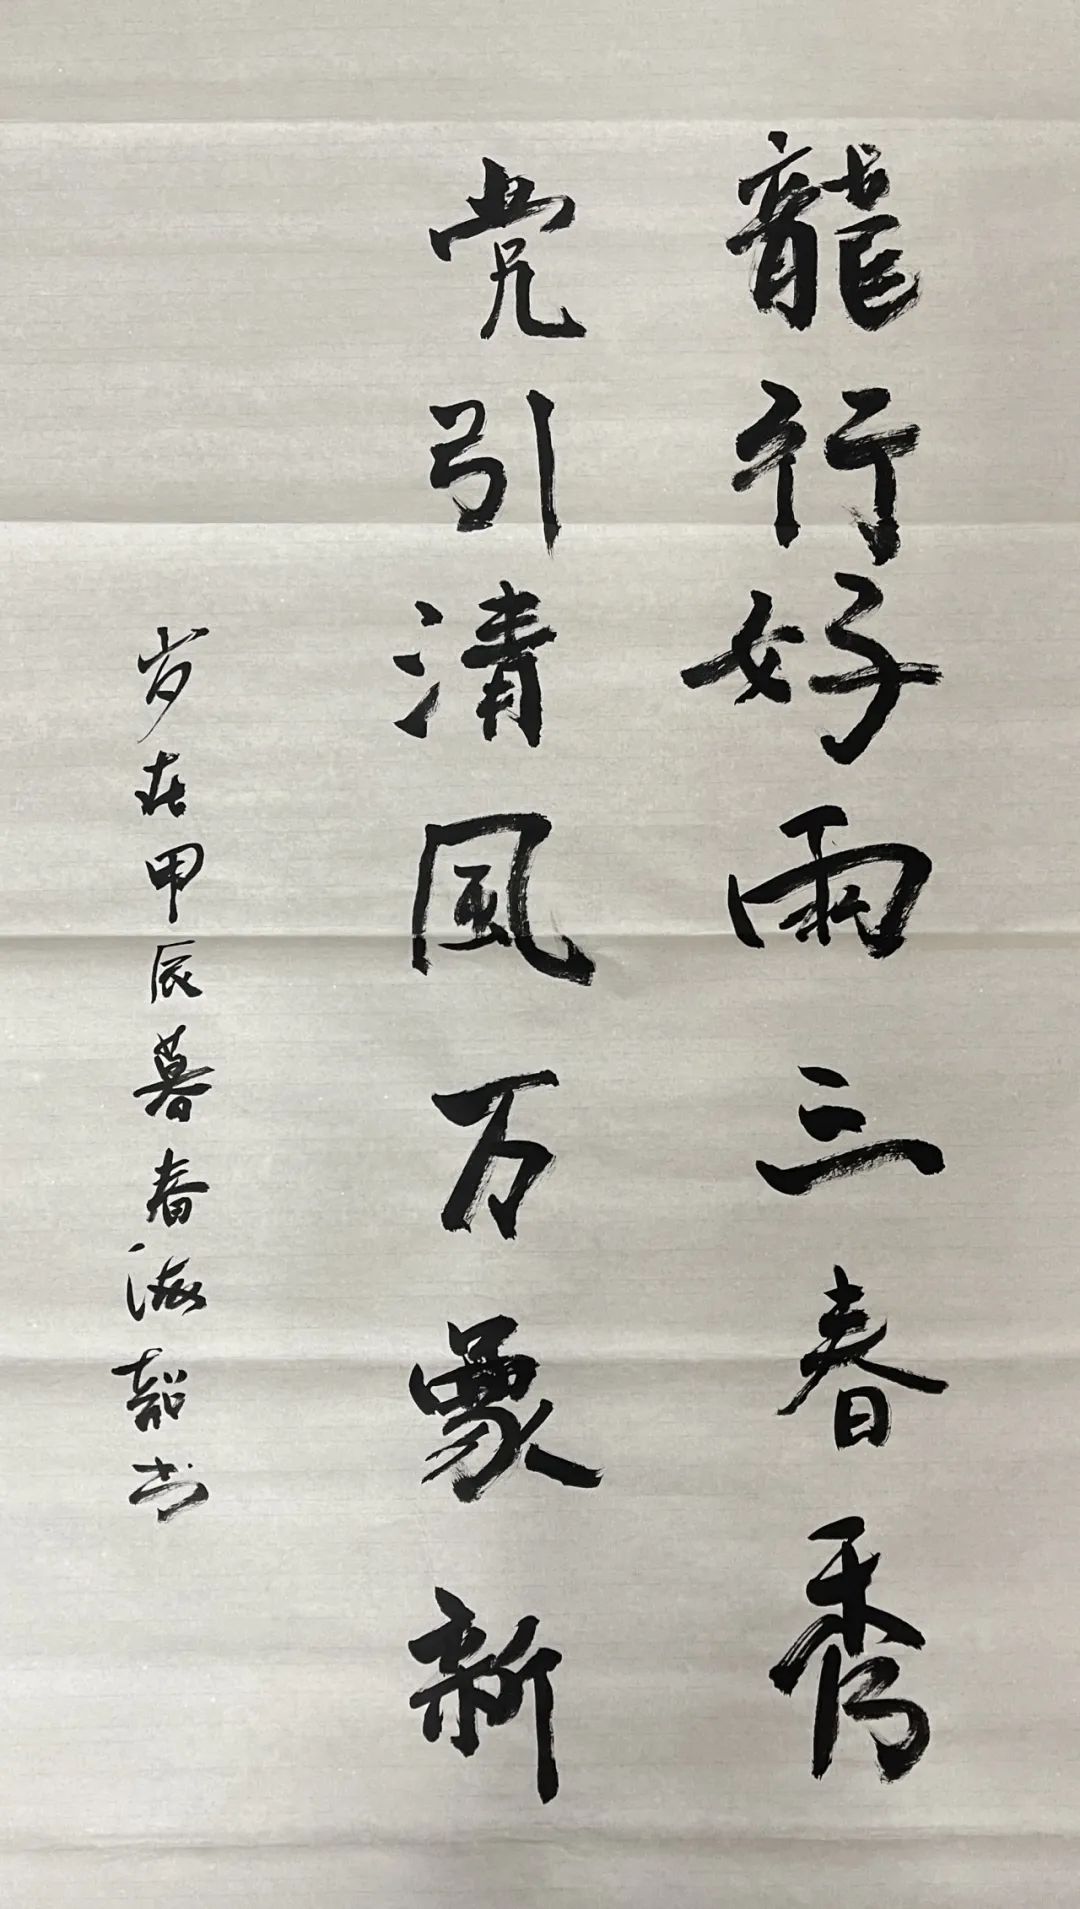 龍行好雨三春秀
党引清風万象新
岁在甲辰暮春海韶书